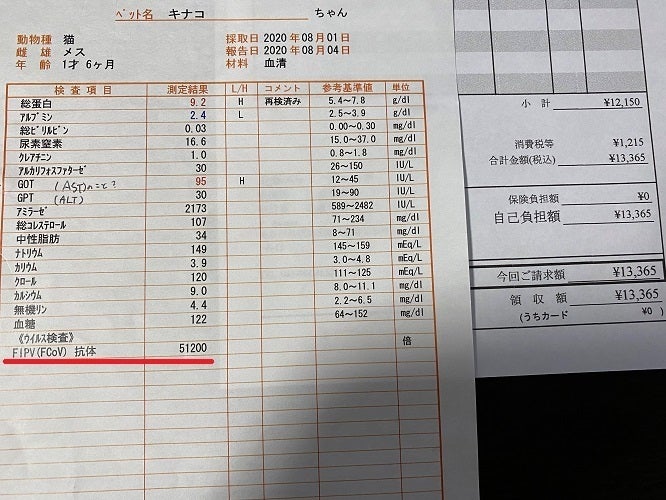 ペット名 キナコ ちゃん
動物種 猫 採取日 2020年08月01日
雌雄 メス 報告日 2020年08月04日
年齢 1才 6ヶ月 材料 血清
検査項目 測定結果 L/H コメント 参考基準値 単位
総蛋白 9.2 H 再検済み 5.4～7.8 g/dl
アルブミン 2.4 L 2.5～3.9 g/dl
総ビリルビン 0.03 0.00～0.30 mg/dl
尿素窒素 16.6 15.0～37.0 mg/dl
クレアチニン 1.0 0.8～1.8 mg/dl
アルカリフォスファターゼ 30 26～150 IU/L
GOT (ASTのこと?) 95 H 12～45 IU/L
GPT (ALT) 30 19～90 IU/L
アミラーゼ 2173 589～2482 IU/L
総コレステロール 107 71～234 mg/dl
中性脂肪 34 8～71 mg/dl
ナトリウム 149 145～159 mEq/L
カリウム 3.9 3.0～4.8 mEq/L
クロール 120 111～125 mEq/L
カルシウム 9.0 8.0～11.1 mg/dl
無機リン 4.4 2.2～6.5 mg/dl
血糖 122 64～152 mg/dl
《ウイルス検査》
FIPV(FCoV) 抗体 51200 倍
小 計 ¥12,150
消費税等 ¥1,215
合計金額(税込) ¥13,365
保険負担額 ¥0
自己負担額 ¥13,365
今回ご請求額 ¥13,365
領 収 額 ¥13,365
(うちカード ¥0 )